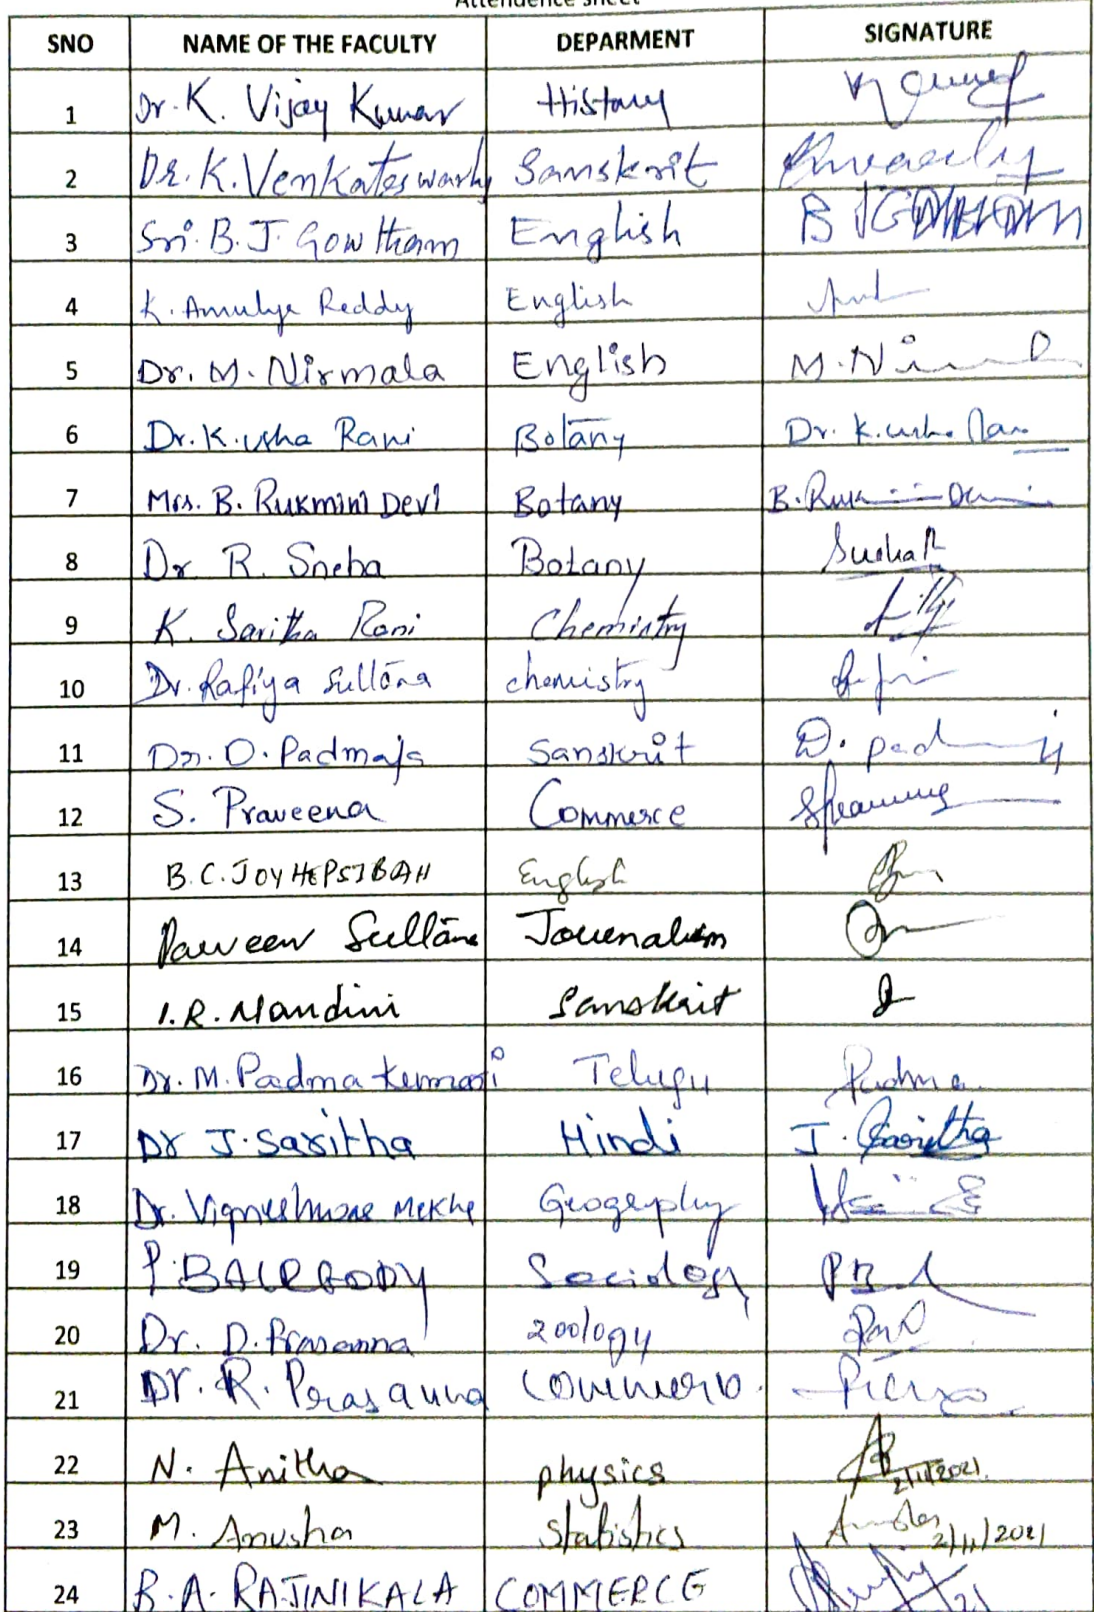 Attendence sheet
SNO NAME OF THE FACULTY DEPARMENT SIGNATURE
1 Dr. K. Vijay Kumar History
2 Dr. K. Venkateswarlu Sanskrit
3 Sri. B. J. Gowtham English B J GOWTHAM
4 K. Amulya Reddy English
5 Dr. M. Nirmala English M. Ni
6 Dr. K. Usha Rani Botany Dr. K. Usha Rani
7 Mrs. B. Rukmini Devi Botany B. Ruk
8 Dr R. Sneha Botany
9 K. Saritha Rani Chemistry
10 Dr. Rafiya Sultana chemistry
11 Dr. D. Padmaja Sanskrit D. Pad
12 S. Praveena Commerce
13 B. C. JOY HEPSIBAH English
14 Parveen Sultana Journalism
15 I. R. Nandini Sanskrit
16 Dr. M. Padma Kumari Telugu Padma
17 Dr J. Saritha Hindi J. Saritha
18 Dr. Vigneshwar Mekhe Geography
19 P. BALREDDY Sociology
20 Dr. D. Prasanna Zoology
21 Dr. R. Prasanna Commerce.
22 N. Anitha physics 2/11/2021.
23 M. Anusha Statistics 2/11/2021
24 B. A. RAJINIKALA COMMERCE